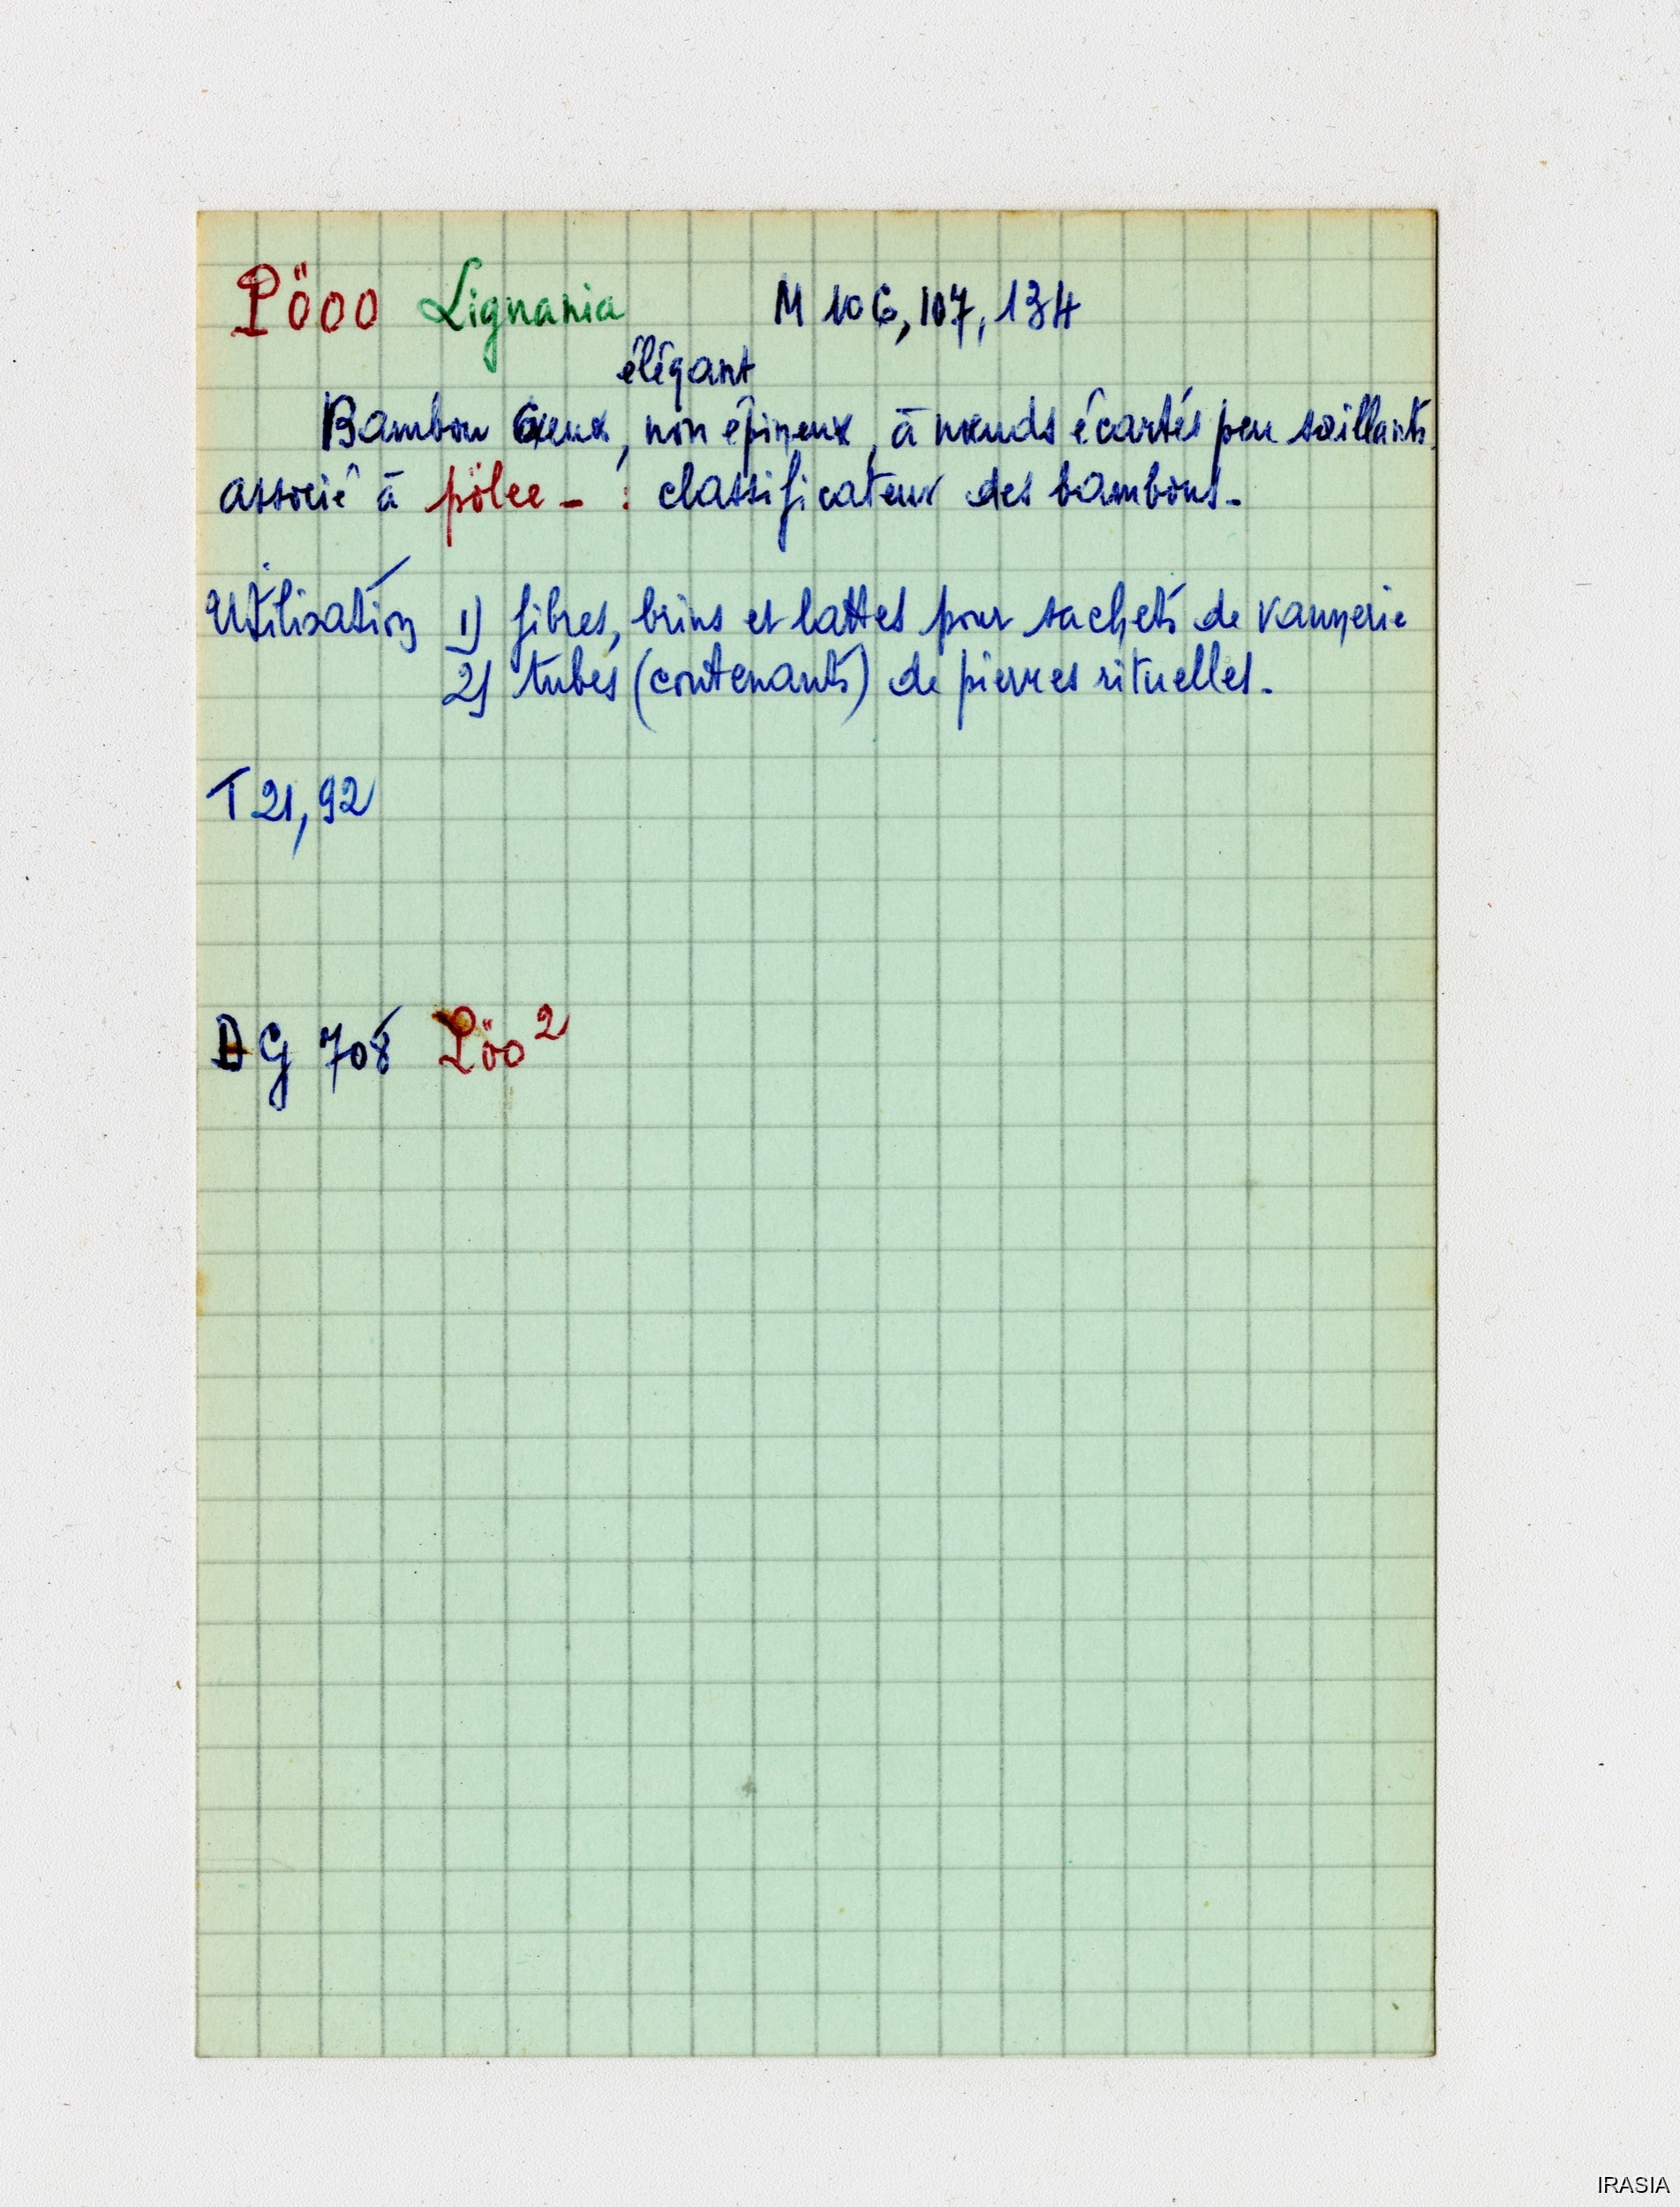 Pöoo Lignania M 106, 107, 134
élégant
Bambou creux, non épineux, à nœuds écartés peu saillants.
associé à pölee - : classificateur des bambous -
Utilisation 1) fibres, brins et lattes pour sachets de vannerie
2) tubes (contenants) de pierres rituelles.
T 21, 92
AG 708 Pöo²
IRASIA